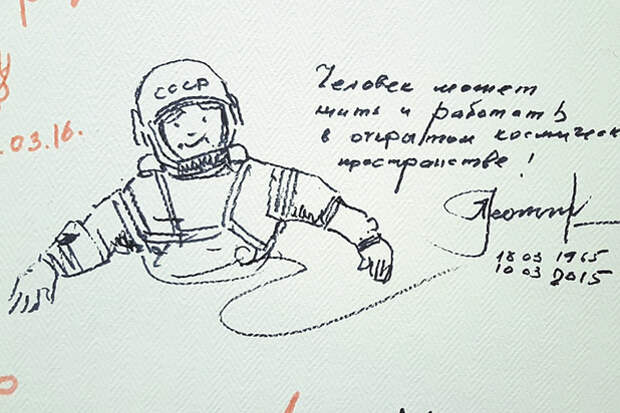 СССР
Человек может
жить и работать
в открытом космическ
пространстве!
18 03 1965
10 03 2015
.03.16.